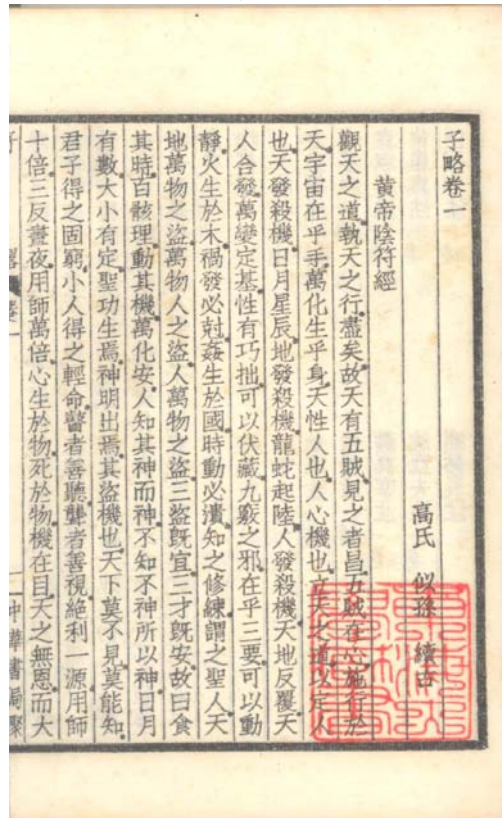 子略卷一
高氏 似孫 續古
黃帝陰符經
觀天之道執天之行盡矣故天有五賊見之者昌五賊在心施行於
天宇宙在乎手萬化生乎身天性人也人心機也立天之道以定人
也天發殺機日月星辰地發殺機龍蛇起陸人發殺機天地反覆天
人合發萬變定基性有巧拙可以伏藏九竅之邪在乎三要可以動
靜火生於木禍發必尅姦生於國時動必潰知之修練謂之聖人天
地萬物之盜萬物人之盜人萬物之盜三盜既宜三才既安故曰食
其時百骸理動其機萬化安人知其神而神不知不神所以神日月
有數大小有定聖功生焉神明出焉其盜機也天下莫不見莫能知
君子得之固窮小人得之輕命瞽者善聽聾者善視絕利一源用師
十倍三反晝夜用師萬倍心生於物死於物機在目天之無恩而大
中華書局聚